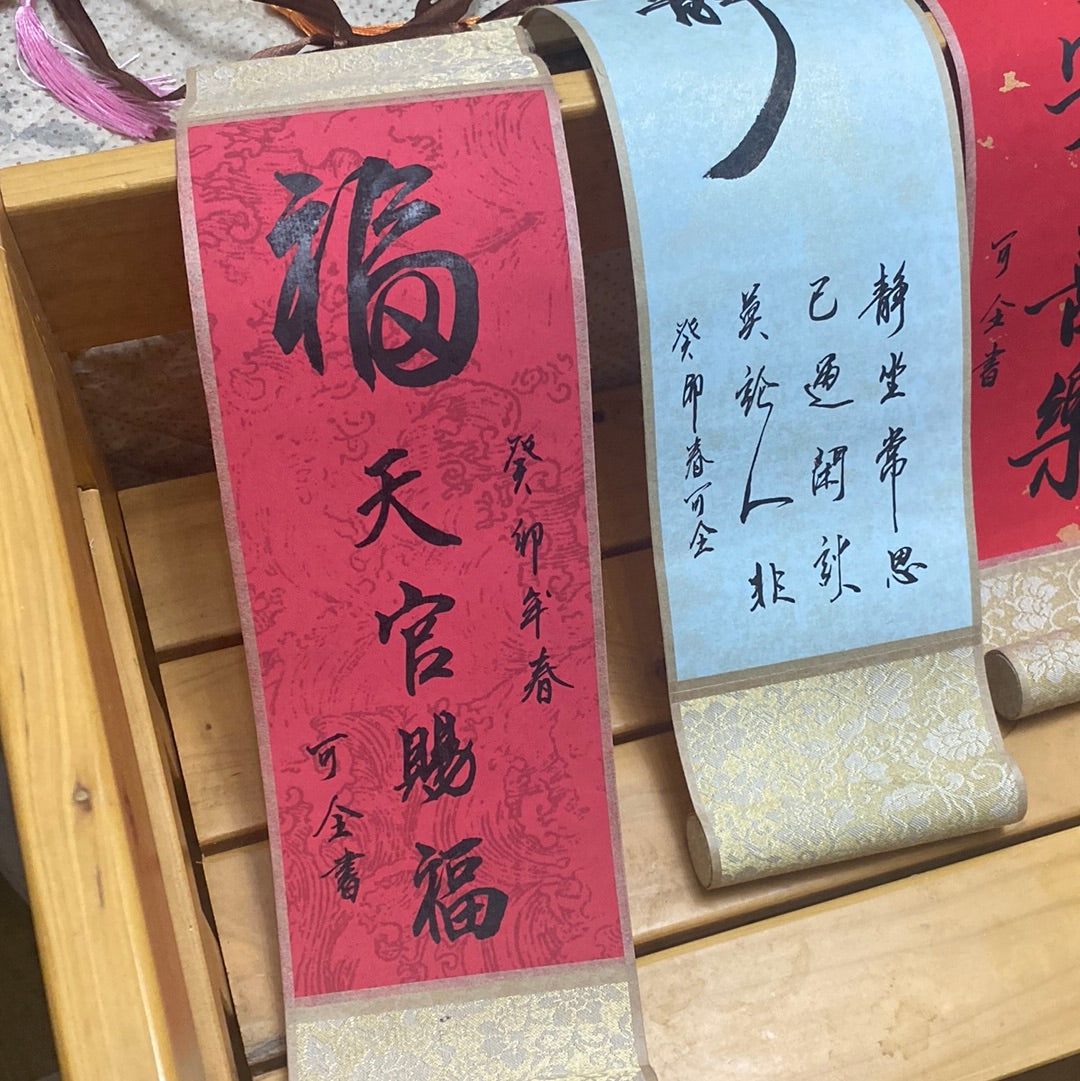 福
癸卯年春
天官賜福
可全書
靜坐常思
己過閑談
莫論人非
癸卯春可全
喜樂
可全書